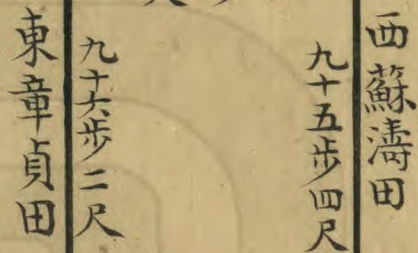 西蘇濤田
九十五步四尺
九十六步二尺
東章貞田